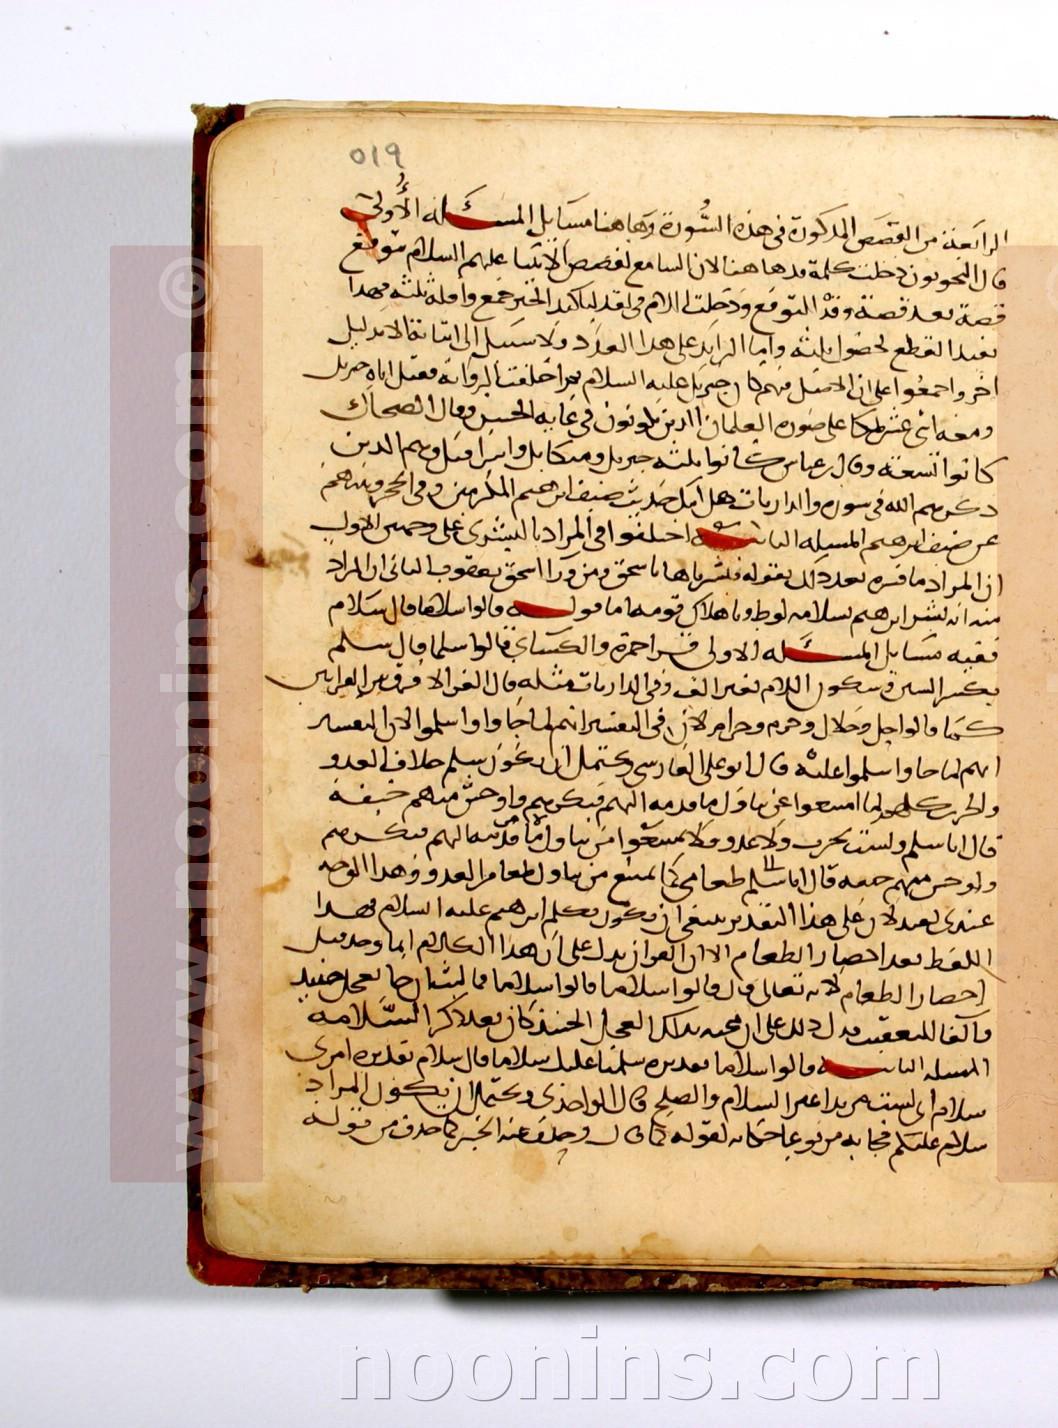 ٥١٩
الرابعة من القصص المذكورة في هذه السورة وهاهنا مسايل المسئله الأولى
قال النحويون دخلت كلمة قد هاهنا لان السامع لقصص الانبيا عليهم السلام يتوقع
قصة بعد قصة وقد للتوقع ودخلت اللام في لقد لتاكيد الخبر جمع واقله ثلثه فهذا
يفيد القطع بحصول ثلثه واما الزايد على هذا العدد فلا سبيل الى اثباته الا بدليل
اخر واجمعوا على ان الاصل فيهم كان جبريل عليه السلام ثم اختلفت الرواية فقيل اتاه جبريل
ومعه اثنى عشر ملكا على صورة الغلمان الذين يكونون في غاية الحسن وقال الضحاك
كانوا تسعة وقال بن عباس كانوا ثلثه جبريل وميكايل واسرافيل وهم الذين
ذكرهم الله في سورة والذاريات هل اتيك حديث ضيف ابرهيم المكرمين وفي الحجر ونبئهم
عن ضيف ابرهيم المسيله الثانيه اختلفوا في المراد بالبشرى على وجهين الاول
ان المراد ما فسره بعد ذلك بقوله فبشرناها باسحق ومن ورآ اسحق يعقوب الثاني ان المراد
منه انه بشر ابرهيم بسلامه لوط وباهلاك قومه اما قوله قالوا سلاما قال سلام
ففيه مسايل المسئله الاولى قرا حمزة والكسائي قالوا سلما قال سلم
بكسر السين وسكون اللام بغير الف وفي الذاريات مثله قال الفرا لا فرق بين القراتين
كما قالوا حل وحلال وحرم وحرام لان في التفسير انهم لما جاوا سلموا لان التفسير
انهم لما جاوا سلموا عليه قال ابو علي الفارسي ويحتمل ان يكون سلم خلاف العدو
والحرب كانهم لما امتنعوا عن تناول ما قدمه اليهم نكرهم واوجس منهم خيفة
قال انا سلم ولست بحرب ولا عدو فلا تمتنعوا من تناول ما قدمته اليهم فنكرهم
واوجس منهم خيفه قال انا سلم طعامي كما يمتنع من تناول طعام العدو وهذا الوجه
عندي بعيد لان على هذا التقدير ينبغي ان يكون تكلم ابرهيم عليه السلام بهذا
اللفظ بعد احضار الطعام الا ان القران يدل على ان هذا الكلام انما وجد قبل
احضار الطعام لانه تعالى قال قالوا سلاما قالوا سلاما فما لبث ان جا بعجل حنيذ
فالفا للتعقيب فدل ذلك على ان مجيه بذلك العجل الحنيذ كان بعد ذكر السلامه
المسله الثانيه قالوا سلاما تقديره سلمنا عليك سلاما قال سلام تقديره امري
سلام اي لست مريدا غير السلام والصلح قال الواحدي ويحتمل ان يكون المراد
سلام عليكم فجا به مرفوعا حكاية لقوله كما قال وحذف عنه الخبر كما حذف من قوله
© www.noonins.com
noonins.com